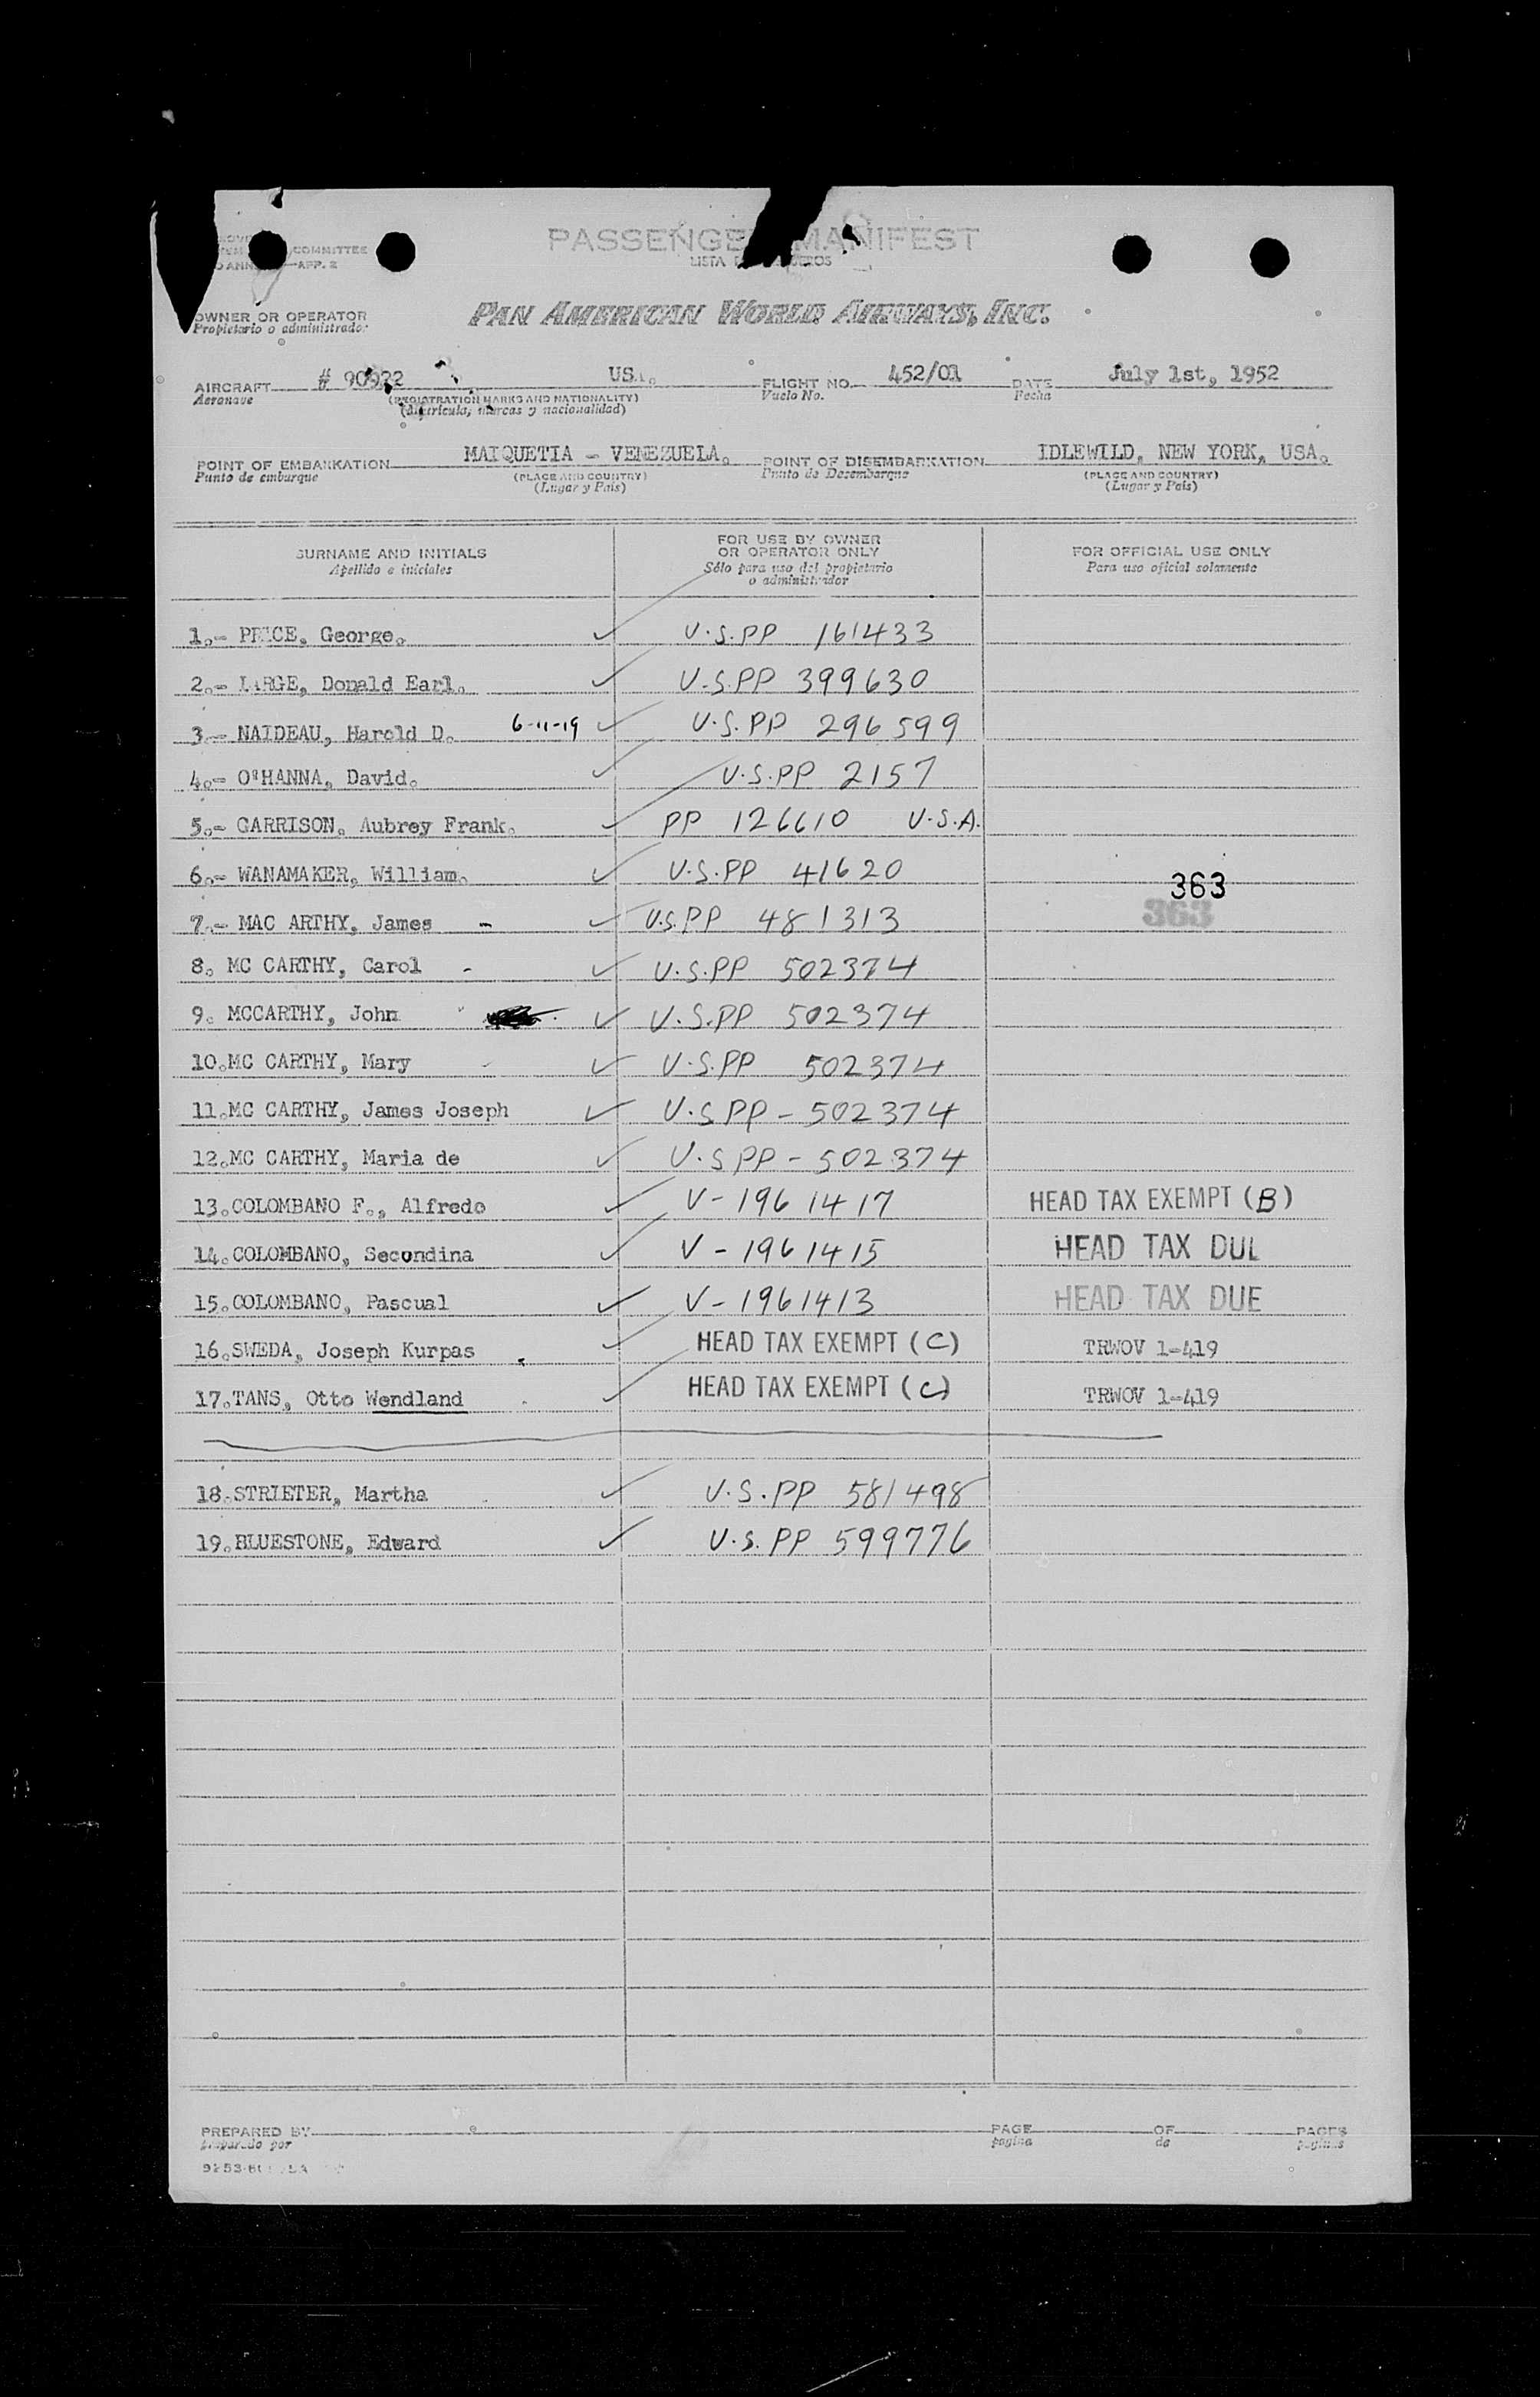 COMMITTEE
APP. 2
PASSENGER MANIFEST
LISTA
OWNER OR OPERATOR
Propietario o administrador
PAN AMERICAN WORLD AIRWAYS, INC.
AIRCRAFT # 90922 USA. FLIGHT NO. 452/01 DATE July 1st, 1952
Aeronave (REGISTRATION MARKS AND NATIONALITY) Vuelo No. Fecha
(Matrícula, marcas y nacionalidad)
POINT OF EMBARKATION MAIQUETIA - VENEZUELA. POINT OF DISEMBARKATION IDLEWILD, NEW YORK, USA.
Punto de embarque (PLACE AND COUNTRY) Punto de Desembarque (PLACE AND COUNTRY)
(Lugar y País) (Lugar y País)
SURNAME AND INITIALS FOR USE BY OWNER OR OPERATOR ONLY FOR OFFICIAL USE ONLY
Apellido e iniciales Sólo para uso del propietario o administrador Para uso oficial solamente
1.- PRICE, George. U.S.PP 161433
2.- LARGE, Donald Earl. U.S.PP 399630
3.- NAIDEAU, Harold D. 6-11-19 U.S.PP 296599
4.- O'HANNA, David. U.S.PP 2157
5.- GARRISON, Aubrey Frank. PP 126610 U.S.A.
6.- WANAMAKER, William. U.S.PP 41620
363
7.- MAC ARTHY, James - U.S.PP 481313 363
8. MC CARTHY, Carol - U.S.PP 502374
9. MCCARTHY, John U.S.PP 502374
10.MC CARTHY, Mary - U.S.PP 502374
11.MC CARTHY, James Joseph U.S PP - 502374
12.MC CARTHY, Maria de U.S PP - 502374
13.COLOMBANO F., Alfredo V-1961417 HEAD TAX EXEMPT (B)
14.COLOMBANO, Secondina V-1961415 HEAD TAX DUE
15.COLOMBANO, Pascual V-1961413 HEAD TAX DUE
16.SWEDA, Joseph Kurpas HEAD TAX EXEMPT (C) TRWOV 1-419
17.TANS, Otto Wendland HEAD TAX EXEMPT (C) TRWOV 1-419
18.STRIETER, Martha U.S.PP 581498
19.BLUESTONE, Edward U.S.PP 599776
PREPARED BY PAGE OF PAGES
preparado por pagina de paginas